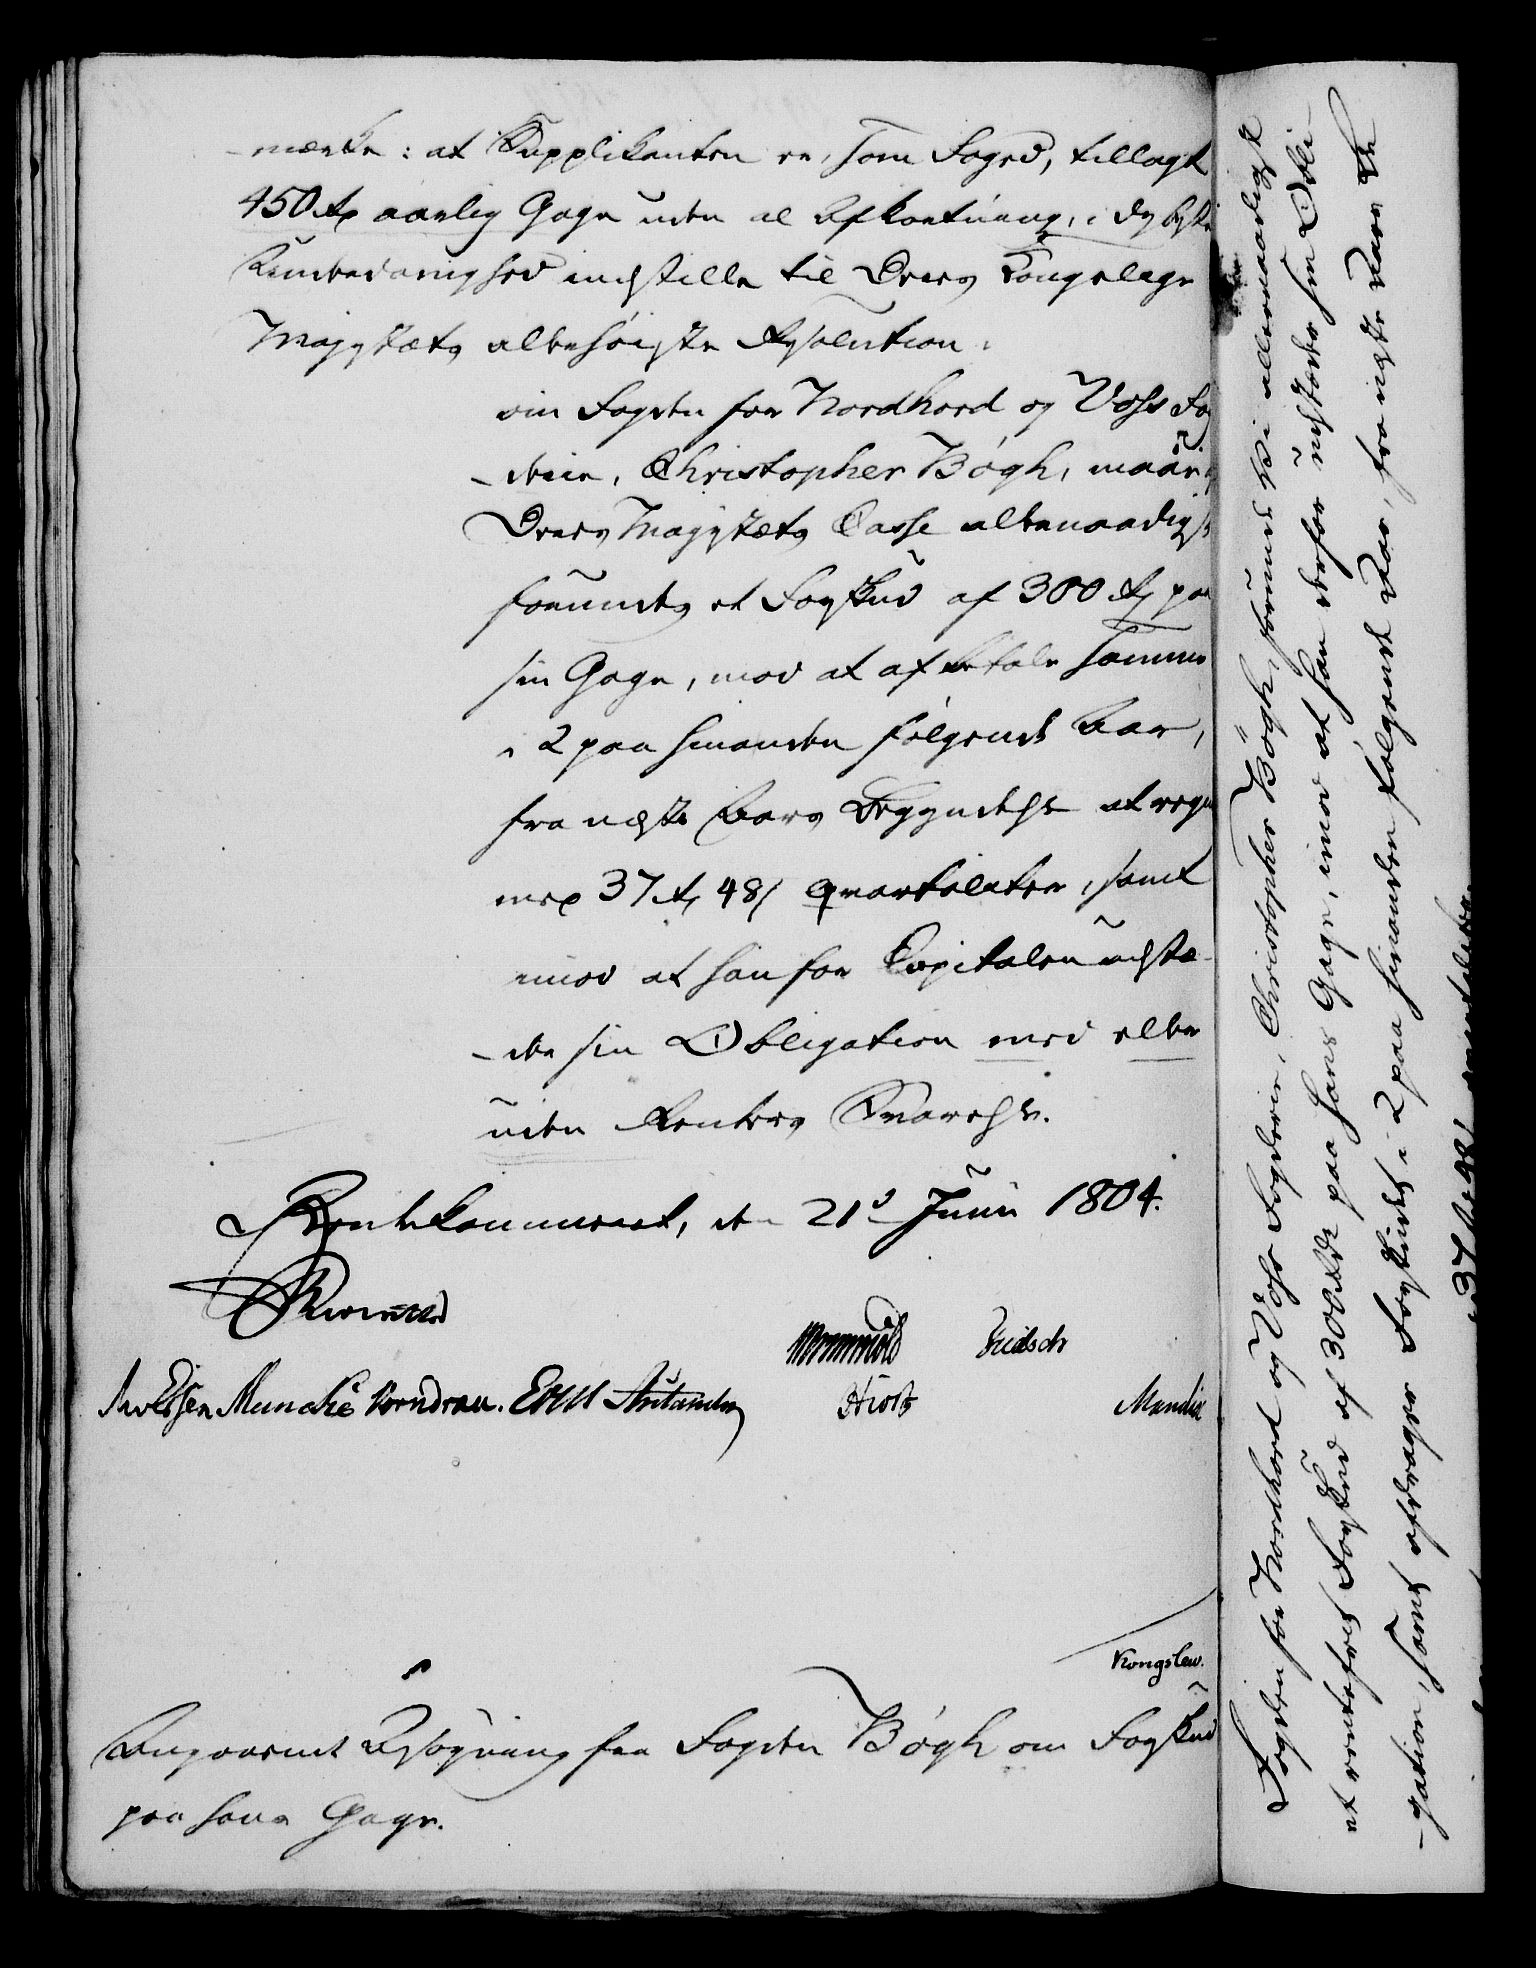 -mærke: at Supplikanten er, som Foged, tillagt
450 rd aarlig Gage uden al Afkortning, i dybeste
Underdanighed indstille til Deres Kongelige
Majestæts allerhøieste Resolution:
om Fogden for Nordhord og Voss Fog
-derie, Christopher Bøgh, maae i
Deres Majestæts Casse allernaadigst
forundes et Forskud af 300 rd paa
sin Gage, mod at afbetale samme
i 2 paa hinanden følgende Aar,
fra næste Aars Begyndelse at regne
med 37 rd 48 s qvartaliter, samt
imod at han for Capitalen udstæ-
-der sin Obligation med eller
uden Renters Svarelse.
Rentekammeret, den 21d Junii 1804.
Reventlow
Wormskiold Fridsch
Essen Muncke Vorndran.
Hiort
Mandix
Kongslew.
Angaaende Ansøgning fra Fogden Bøgh om Forskud
paa hans Gage.
Fogden for Nordhord og Voss Fogderie, Christopher Bøgh, forunde Vi allernaadigst
et rentefrit Forskud af 300 rd paa hans Gage, imod at han derfor udstæder sin Obli-
-gation, samt afdrager Forskudet i 2 paa hinanden følgende Aar, fra næste Aars Be
37 rd 48 s qvartaliter.